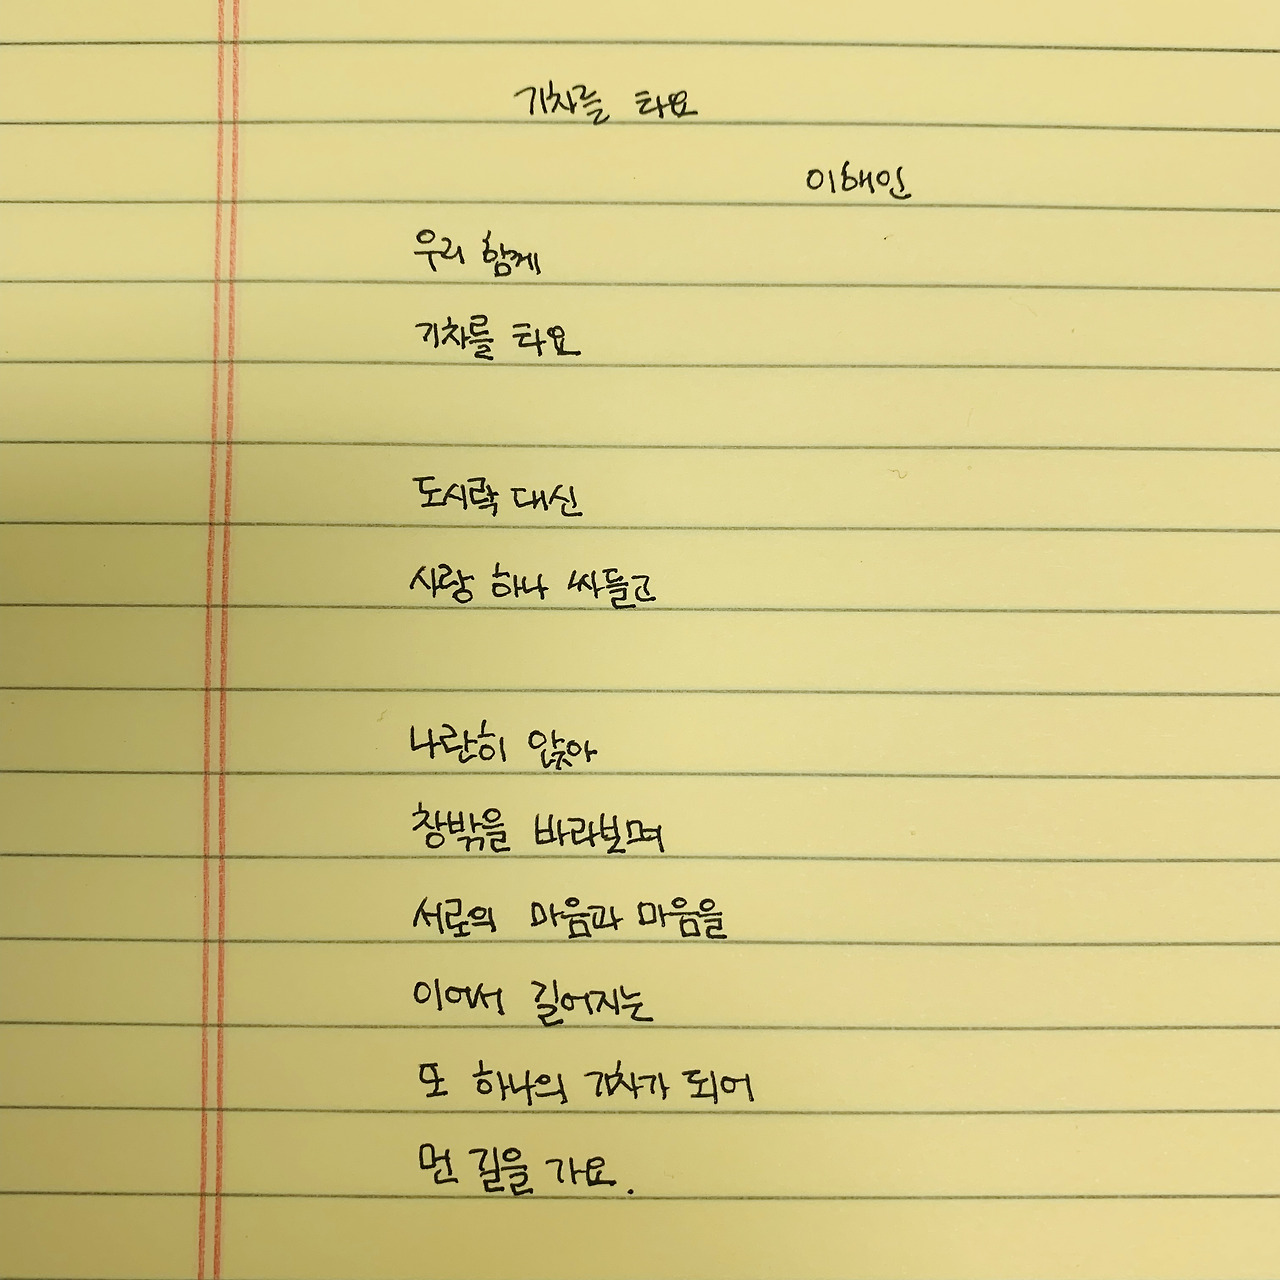 기차를 타요
이해인
우리 함께
기차를 타요
도시락 대신
사랑 하나 싸들고
나란히 앉아
창밖을 바라보며
서로의 마음과 마음을
이어서 길어지는
또 하나의 기차가 되어
먼 길을 가요.